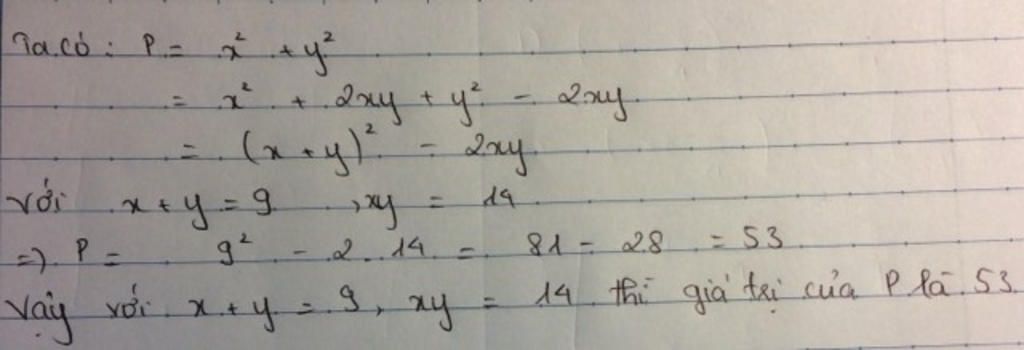 Ta có : P = x² + y²
= x² + 2xy + y² - 2xy
= (x + y)² - 2xy
với x + y = 9 , xy = 14
=> P = 9² - 2 . 14 = 81 - 28 = 53
Vậy với x + y = 9, xy = 14 thì giá trị của P là 53